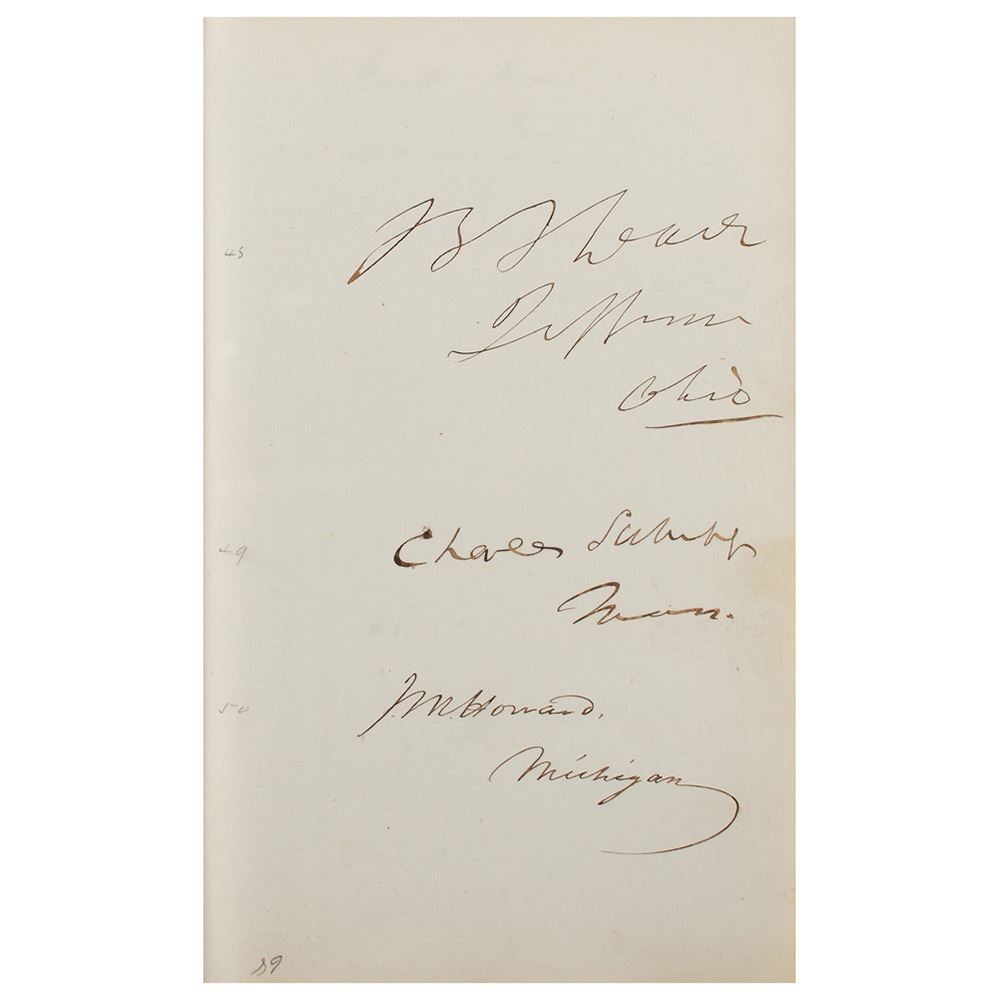 48
B
Jefferson
Ohio
49
Charles
Mass.
50
J.M. Howard.
Michigan
89